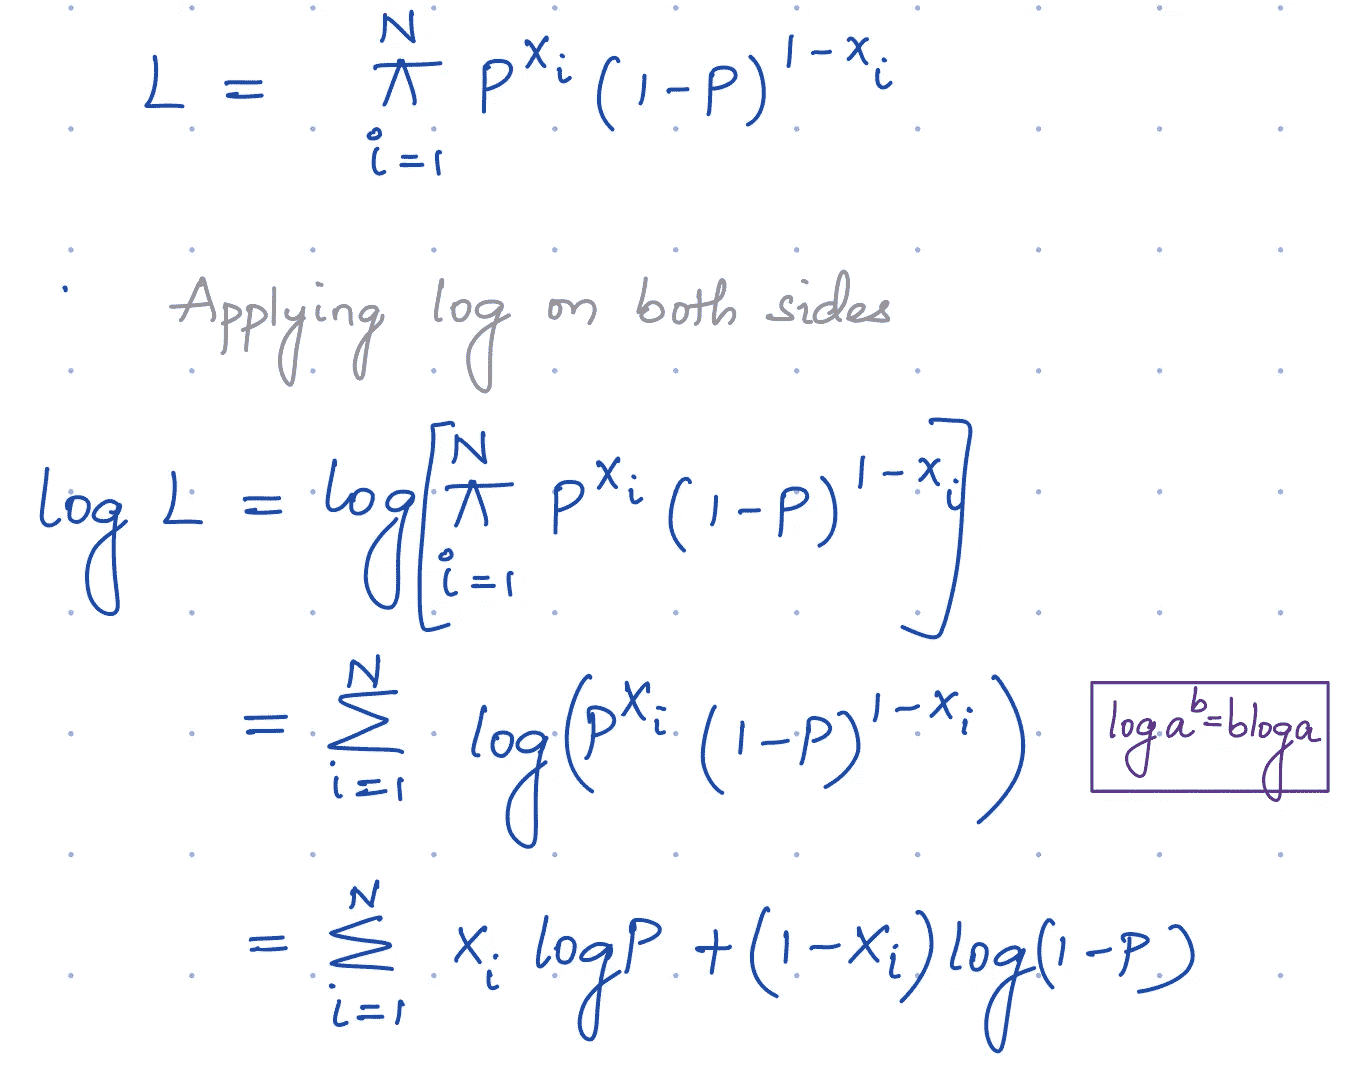 L = ∏_{i=1}^{N} P^{x_i} (1-P)^{1-x_i}
Applying log on both sides
log L = log[∏_{i=1}^{N} P^{x_i} (1-P)^{1-x_i}]
= ∑_{i=1}^{N} log(P^{x_i} (1-P)^{1-x_i})
log a^b = b log a
= ∑_{i=1}^{N} x_i log P + (1-x_i) log(1-P)